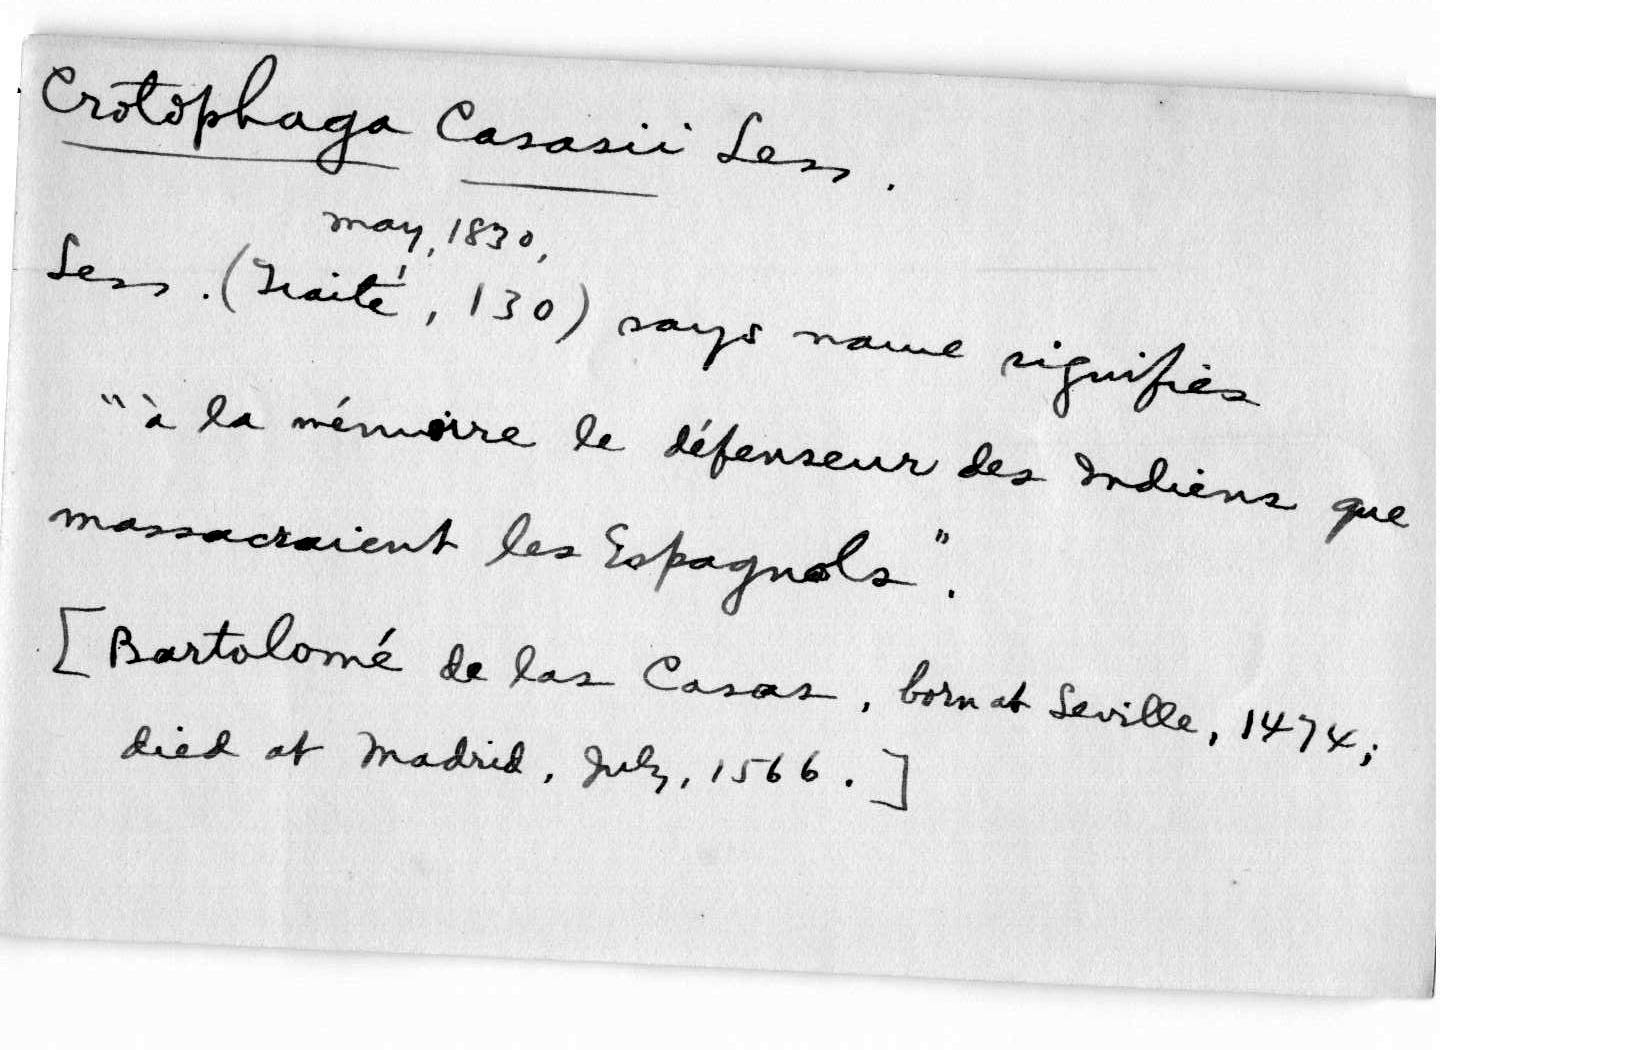 Crotophaga Casasii Less.
May, 1830,
Less. (Traité, 130) says name signifies
"à la mémoire le défenseur des Indiens que
massacraient les Espagnols".
[Bartolomé de las Casas, born at Seville, 1474;
died at Madrid, July, 1566.]